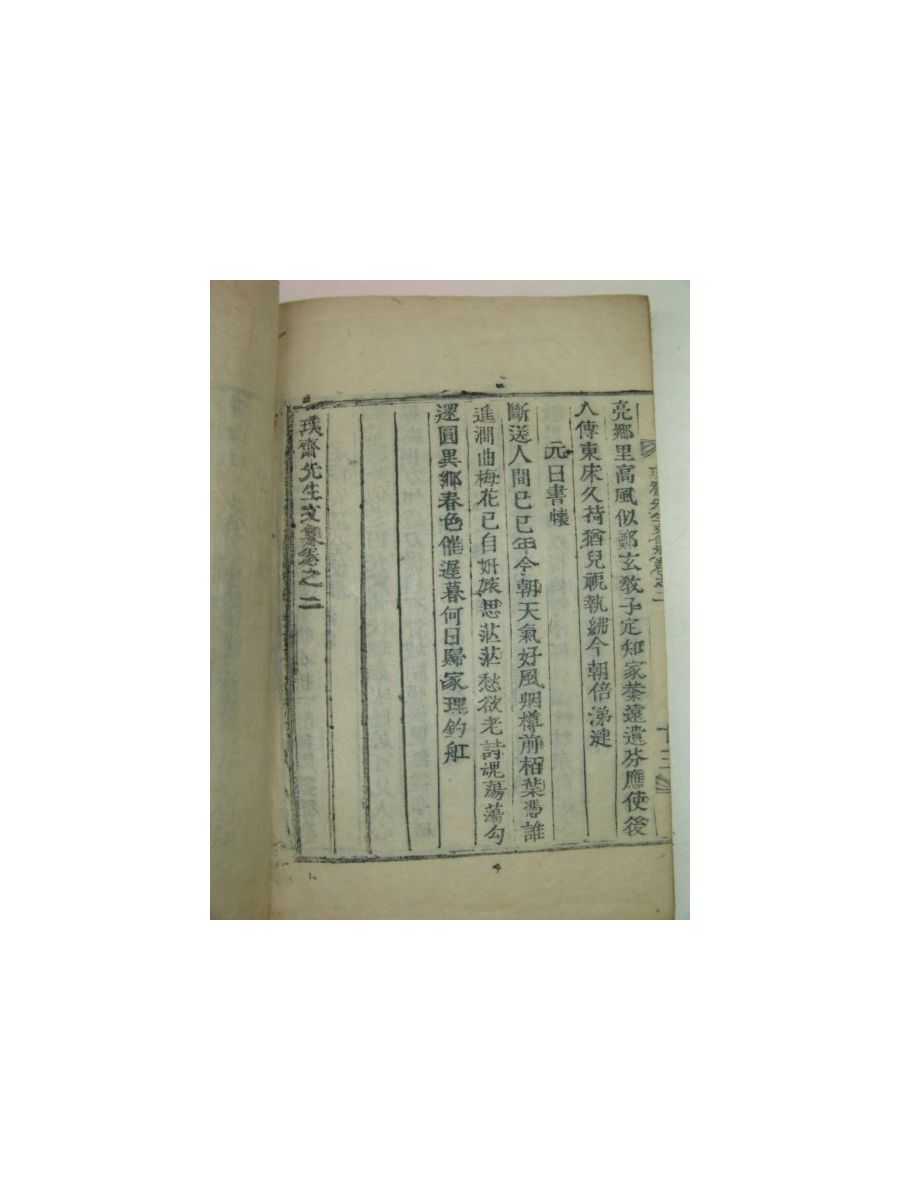 亮鄕里高風似鄭玄敎子定知家業遠遺芬應使後
人傳東床久荷猶兒視執紼今朝倍涕漣
元日書懷
斷送人間已巳年今朝天氣好風烟樽前栢葉憑誰
進澗曲梅花已自姸旅思茫茫愁欲老詩魂蕩蕩勾
還圓異鄕春色催遲暮何日歸家理釣舡
璞齋先生文集卷之二